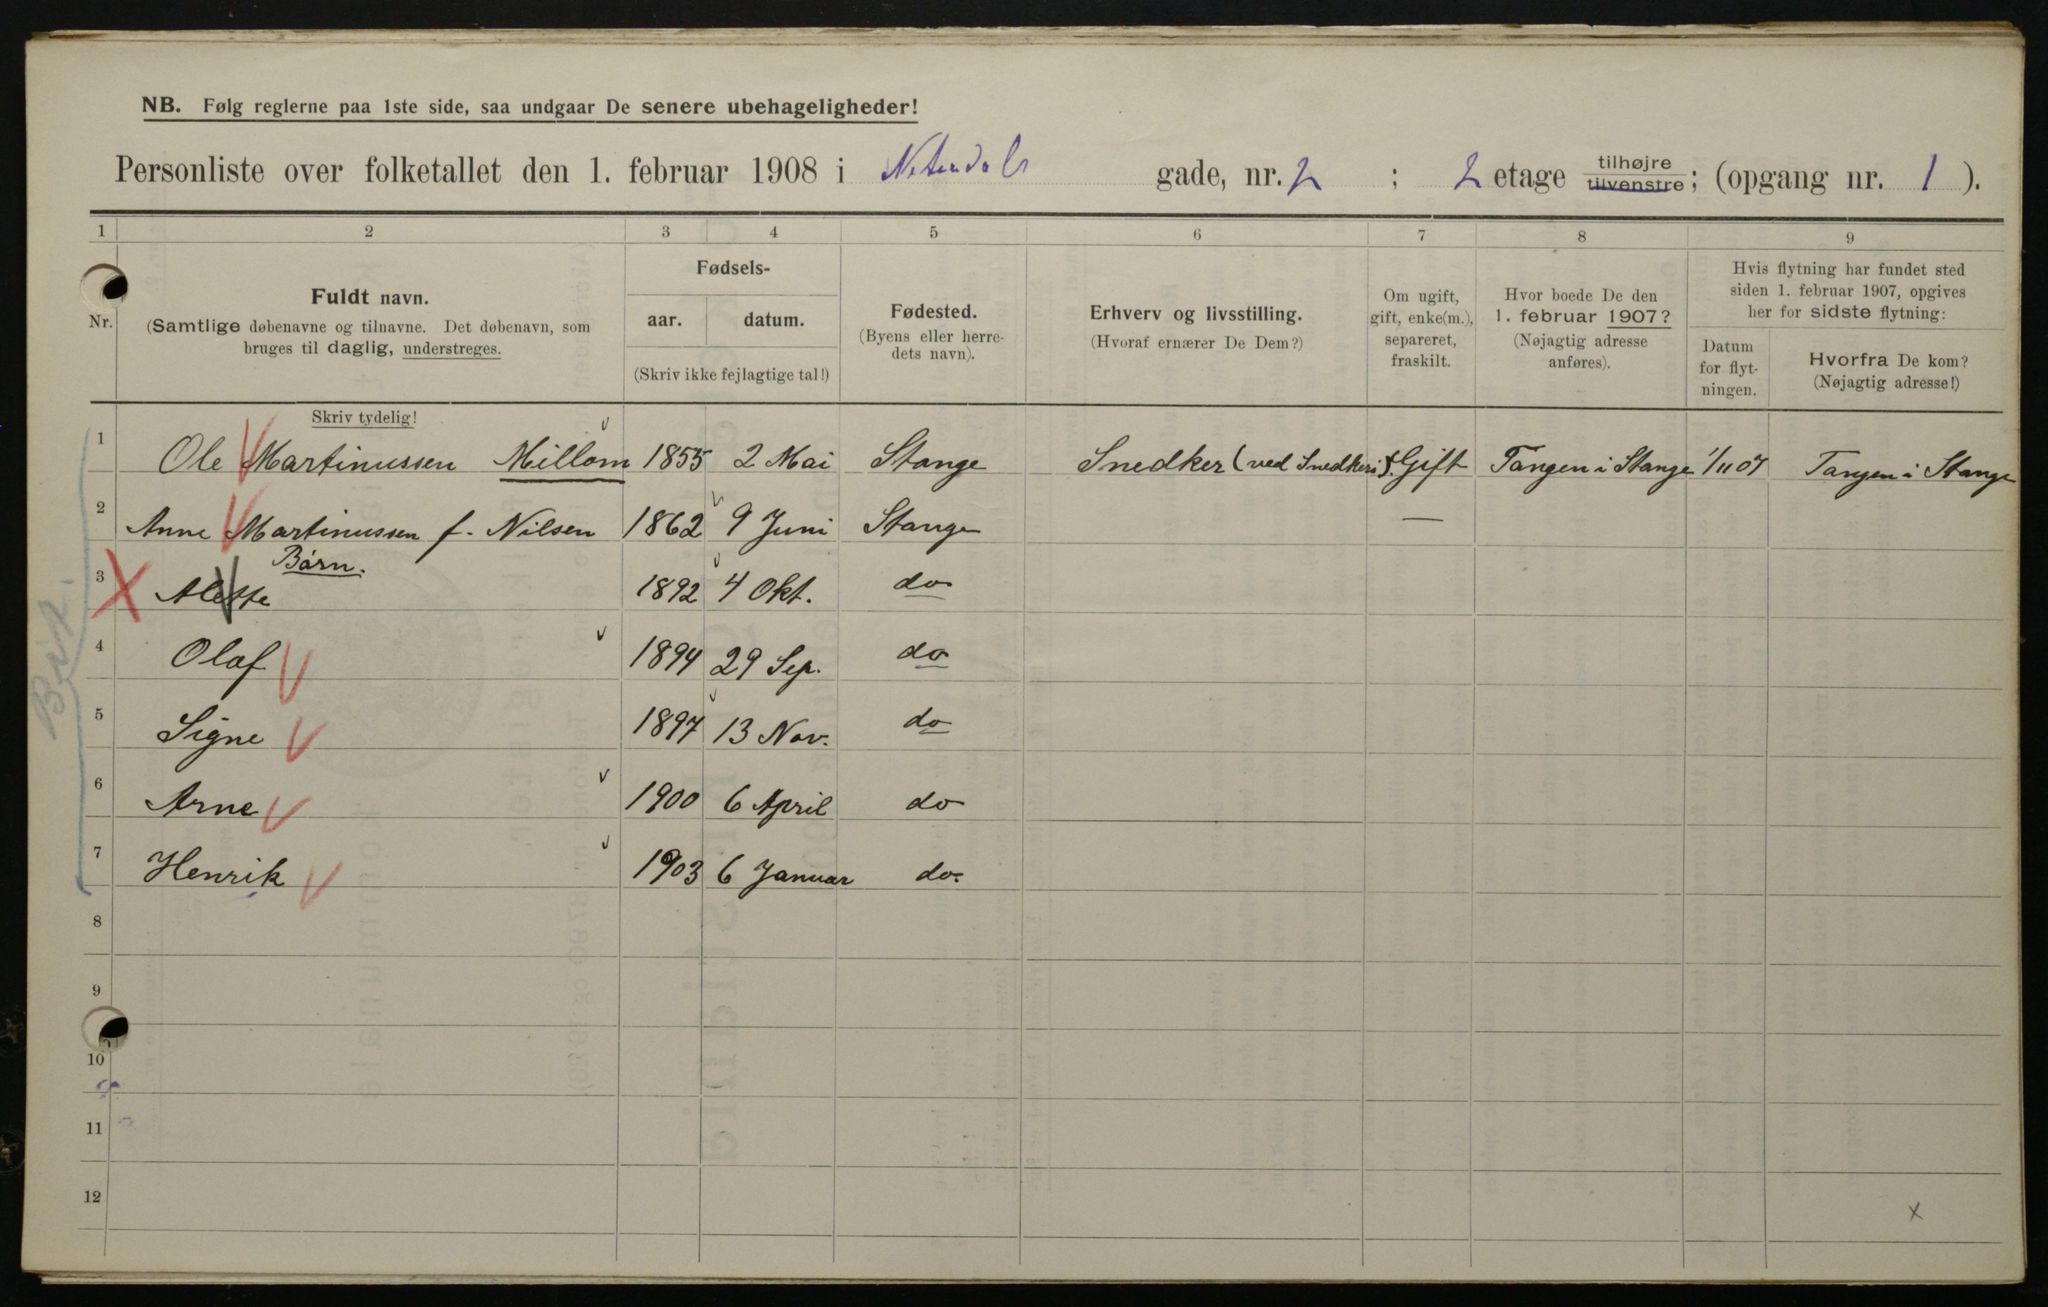 NB. Følg reglerne paa 1ste side, saa undgaar De senere ubehageligheder!
Personliste over folketallet den 1. februar 1908 i gade, nr. 2 ; 2 etage tilhøjre tilvenstre ; (opgang nr. 1 ).
1 2 3 4 5 6 7 8 9
Nr.
Fuldt navn.
(Samtlige døbenavne og tilnavne. Det døbenavn, som
bruges til daglig, understreges.
Skriv tydelig!
Fødsels-
aar. datum.
(Skriv ikke fejlagtige tal!)
Fødested.
(Byens eller herre-
dets navn).
Erhverv og livsstilling.
(Hvoraf ernærer De Dem?)
Om ugift,
gift, enke(m.),
separeret,
fraskilt.
Hvor boede De den
1. februar 1907?
(Nøjagtig adresse
anføres).
Hvis flytning har fundet sted
siden 1. februar 1907, opgives
her for sidste flytning:
Datum
for flyt-
ningen.
Hvorfra De kom?
(Nøjagtig adresse!)
1 Ole Martinussen Millom 1855 2 Mai Stange Snedker (ved Snedkeri). Gift Tangen i Stange 1/11 07 Tangen i Stange
2 Anne Martinussen f. Nilsen 1862 9 Juni Stange —
Børn.
3 Alette 1892 4 Okt. do
4 Olaf 1894 29 Sep. do
5 Signe 1897 13 Nov. do
6 Arne 1900 6 April do
7 Henrik 1903 6 Januar do.
8
9
10
11
12
x